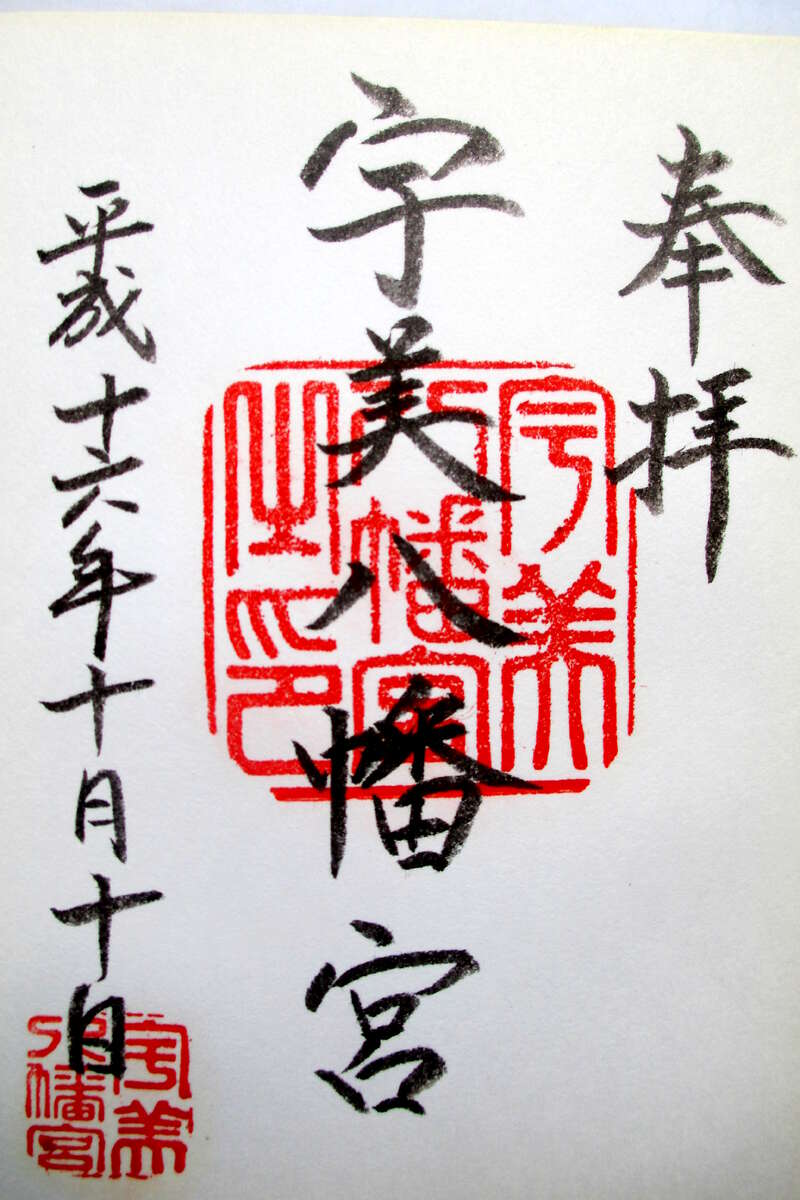 奉拝
宇美八幡宮
宇美
八幡宮
之印
平成十六年十月十日
宇美
八幡宮